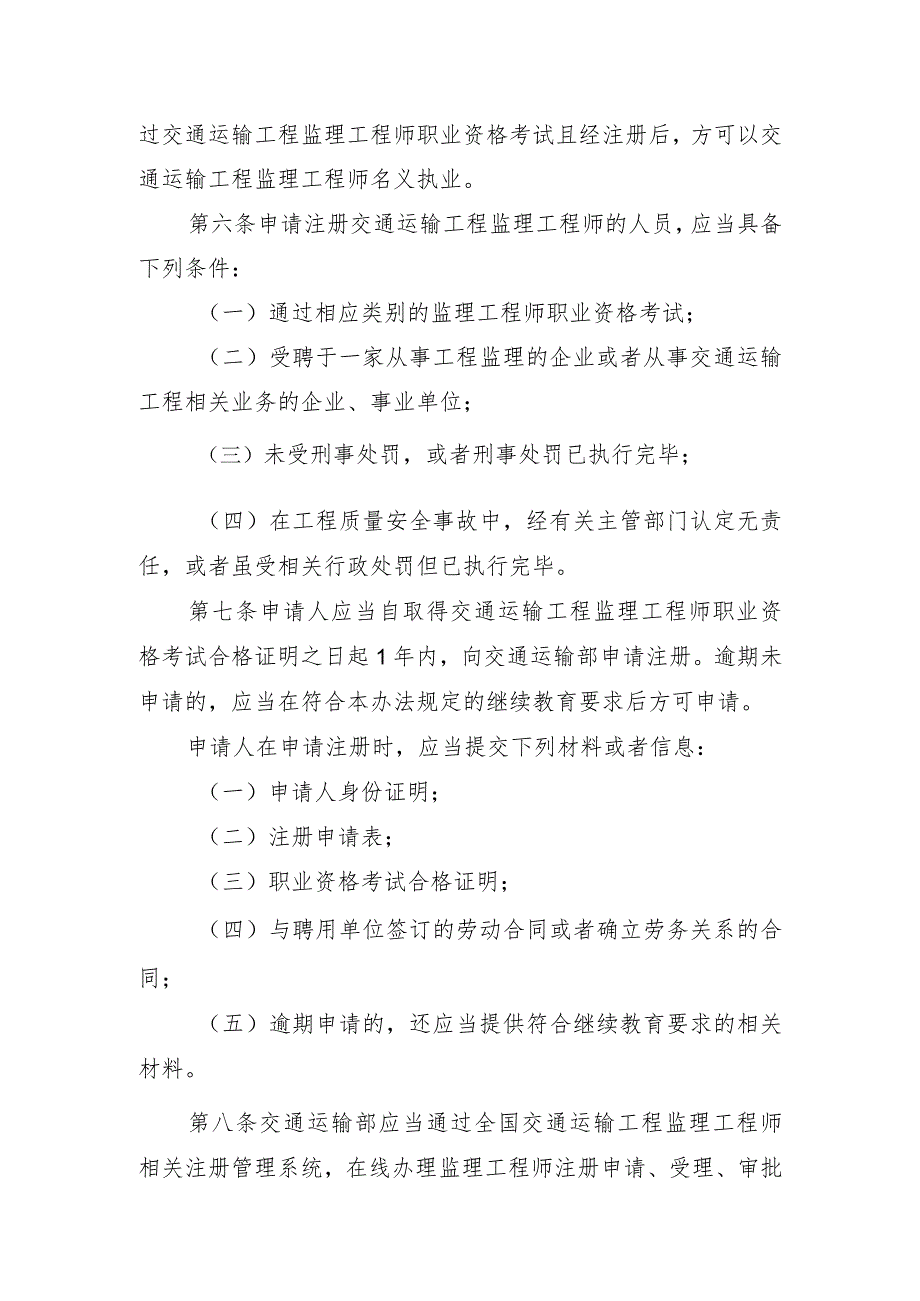 过交通运输工程监理工程师职业资格考试且经注册后，方可以交
通运输工程监理工程师名义执业。
第六条申请注册交通运输工程监理工程师的人员，应当具备
下列条件：
（一）通过相应类别的监理工程师职业资格考试；
（二）受聘于一家从事工程监理的企业或者从事交通运输
工程相关业务的企业、事业单位；
（三）未受刑事处罚，或者刑事处罚已执行完毕；
（四）在工程质量安全事故中，经有关主管部门认定无责
任，或者虽受相关行政处罚但已执行完毕。
第七条申请人应当自取得交通运输工程监理工程师职业资
格考试合格证明之日起1年内，向交通运输部申请注册。逾期未
申请的，应当在符合本办法规定的继续教育要求后方可申请。
申请人在申请注册时，应当提交下列材料或者信息：
（一）申请人身份证明；
（二）注册申请表；
（三）职业资格考试合格证明；
（四）与聘用单位签订的劳动合同或者确立劳务关系的合
同；
（五）逾期申请的，还应当提供符合继续教育要求的相关
材料。
第八条交通运输部应当通过全国交通运输工程监理工程师
相关注册管理系统，在线办理监理工程师注册申请、受理、审批